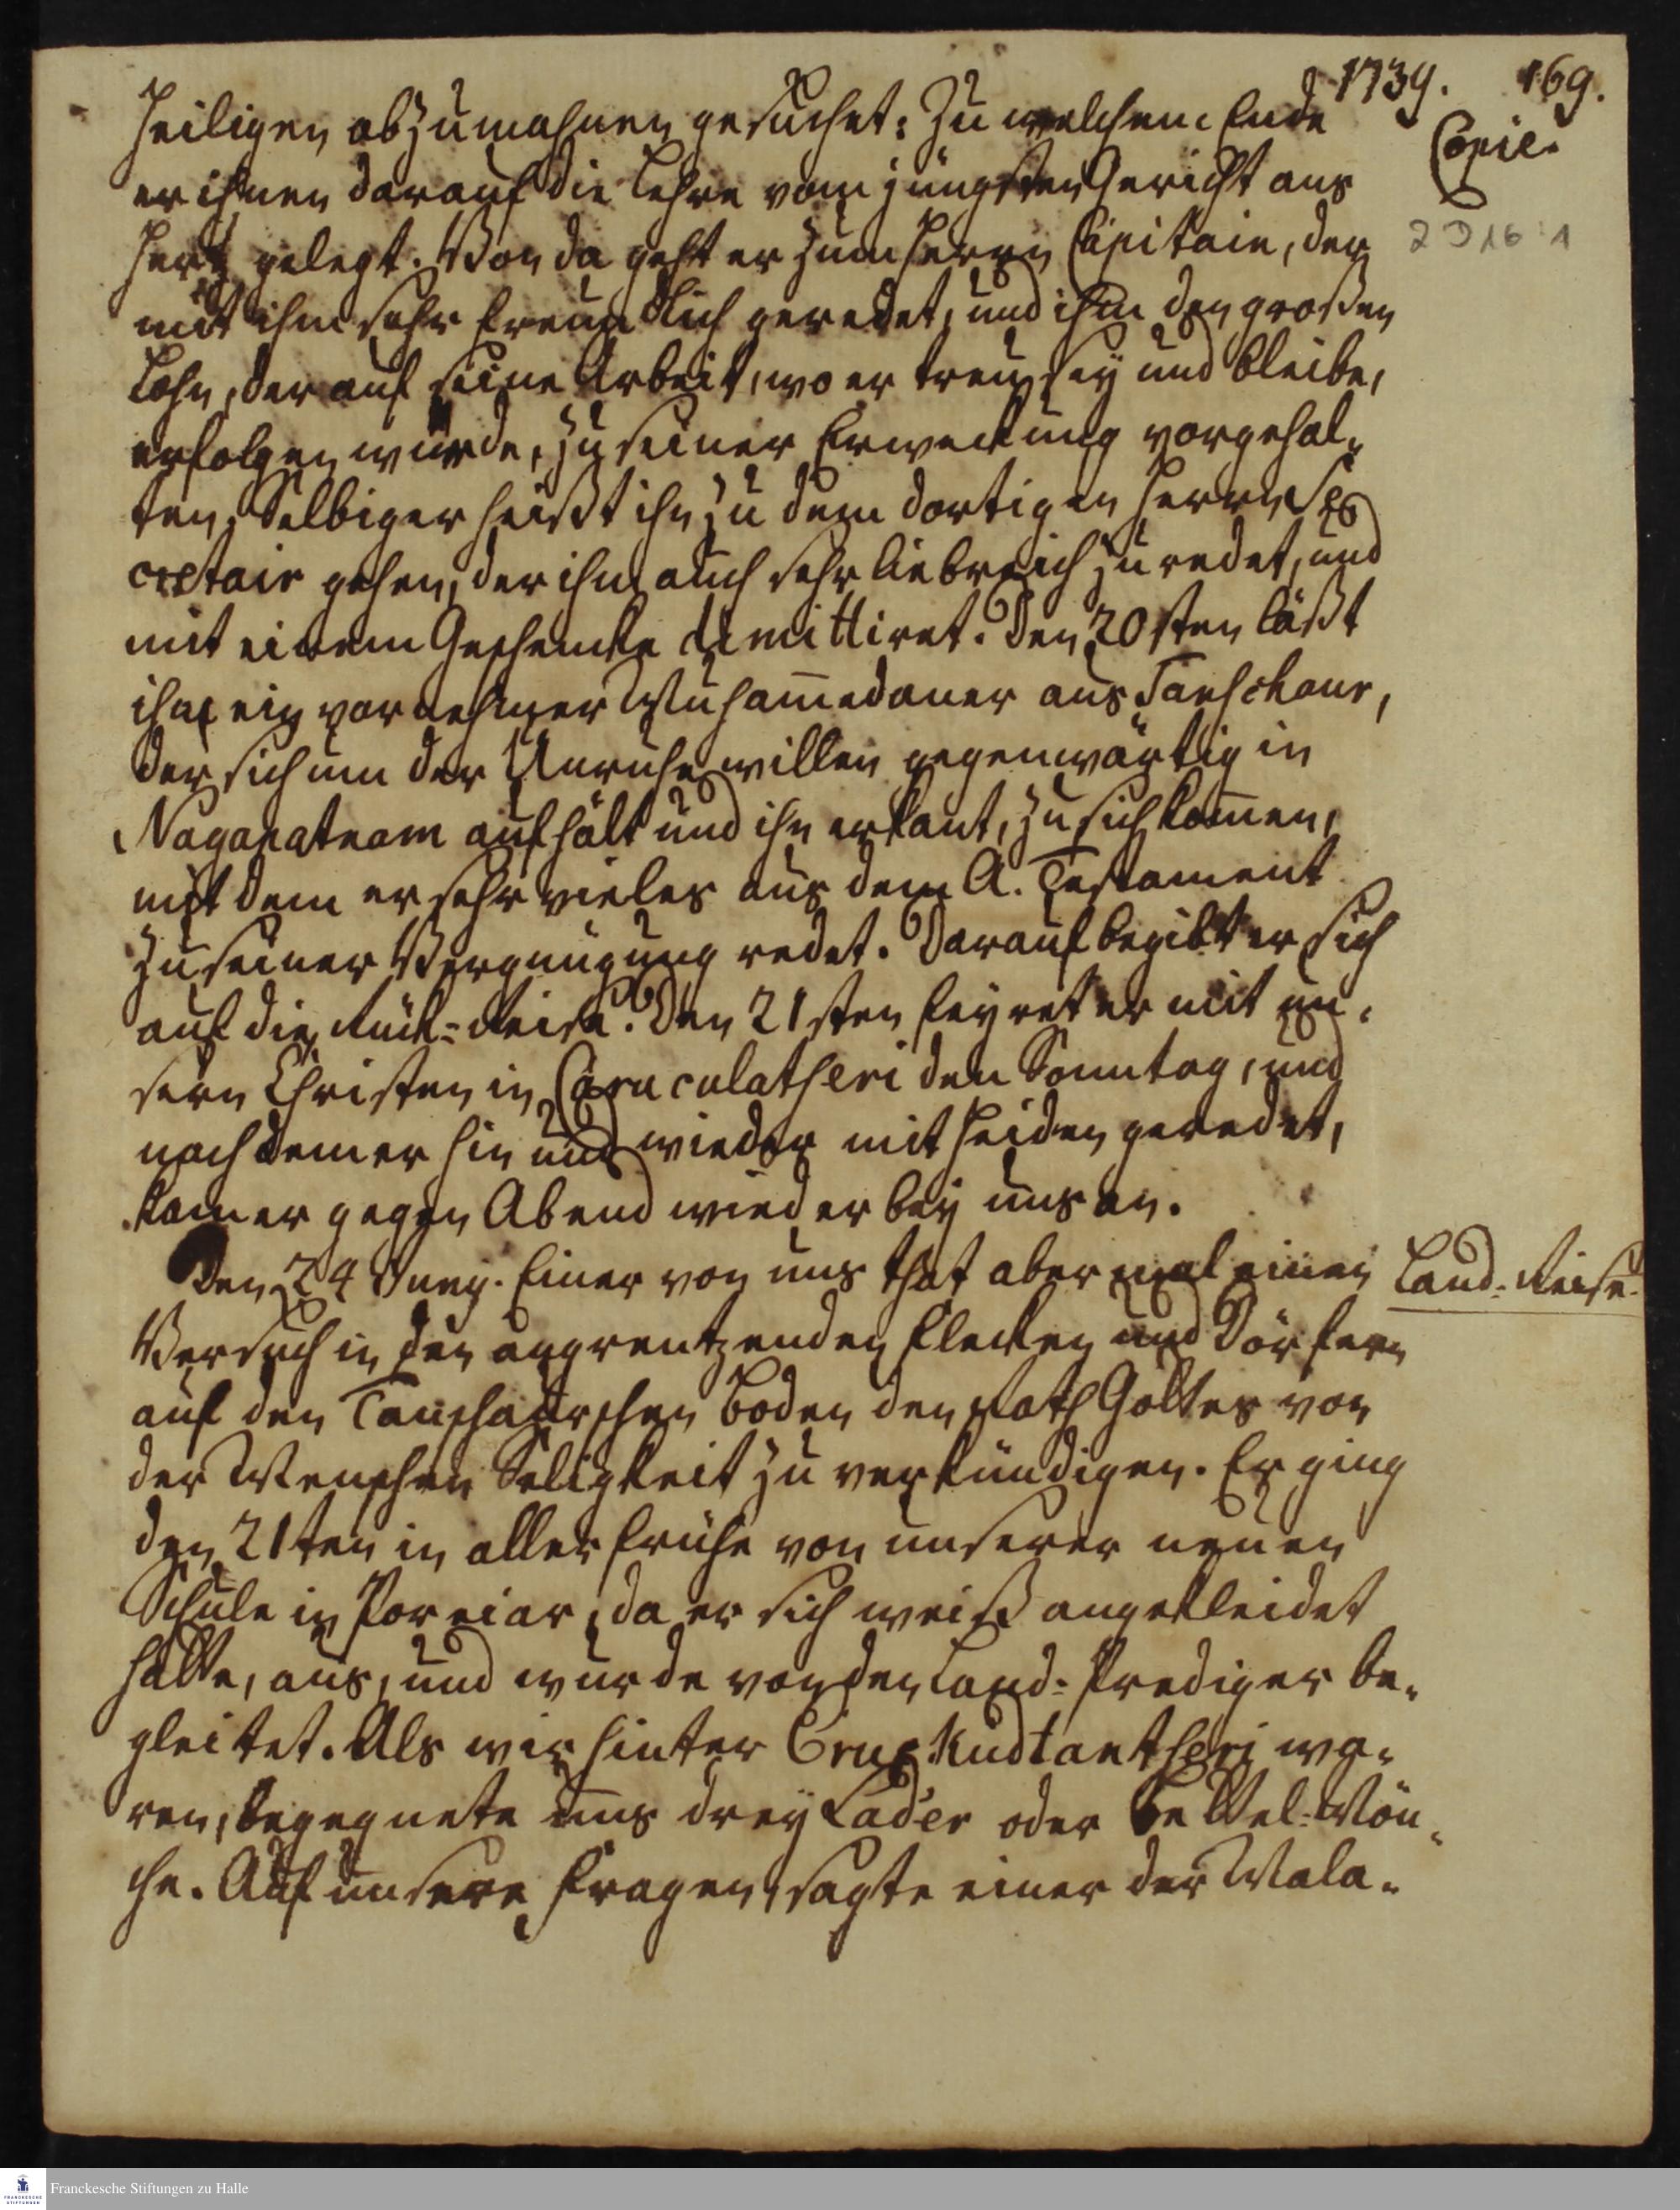 1739. 169.
Copie.
2 D 16 : 1
Heiligen abzumahnen gesuchet: Zu welchem Ende
er ihnen darauf die Lehre vom jüngsten Gericht ans
Hertz gelegt. Von da geht er zum Herrn Capitain, der
mit ihm sehr freundlich geredet, und ihm den großen
Lohn, der auf seine Arbeit, wo er treu sey und bleibe,
erfolgen würde, zu seiner Erweckung vorgehal-
ten, Selbiger heißt ihn zu dem dortigen Herrn Se-
cretair gehen, der ihm auch sehr liebreich zu redet, und
mit einem Geschencke dimittiret. Den 20sten läßt
ihn ein vornehmer Muham̄edaner aus Tanschaur,
der sich um der Unruhe willen gegenwärtig in
Nagapatnam aufhält und ihn erkant, zu sich kom̄en,
mit dem er sehr vieles aus dem A. Testament
zu seiner Vergnügung redet. Darauf begibt er sich
auf die Rück-Reise. Den 21sten feyret er mit un-
sern Christen in Caruculatscheri den Sonntag, und
nachdem er hin und wieder mit Heiden geredet,
kam er gegen Abend wieder bey uns an.
Den 24 Juny. Einer von uns that abermal einen
Land-Reise.
Versuch in den angrentzenden Flecken und Dörfern
auf den Tanschaurschen Boden den Rath Gottes von
der Menschen Seligkeit zu verkündigen. Er ging
den 21ten in aller Frühe von unserer neuen
Schule in Poreiar, da er sich weiß angekleidet
hatte, aus, und wurde von den Land-Prediger be-
gleitet. Als wir hinter Erukudtantscheri wa-
ren, begegnete uns drey Lader oder Bettel-Mön-
che. Auf unsere Fragen, sagte einer der Mala-